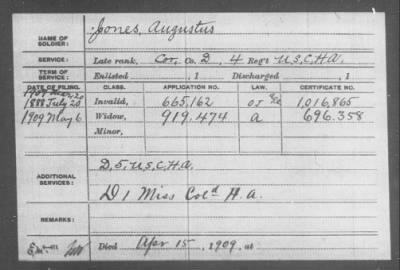 NAME OF SOLDIER: Jones, Augustus
SERVICE: Late rank, Cor, Co. D, 4 Reg't U.S.C.H.A.
TERM OF SERVICE: Enlisted , 1 Discharged , 1
DATE OF FILING. CLASS. APPLICATION NO. LAW. CERTIFICATE NO.
1888 July 20 Invalid, 665,162 1,016,865
1909 May 6 Widow, 919.474 a 696.358
Minor,
ADDITIONAL SERVICES: D, 5, U.S.C.H.A.
D 1 Miss Col'd H.A.
REMARKS:
Died Apr 15, 1909, at